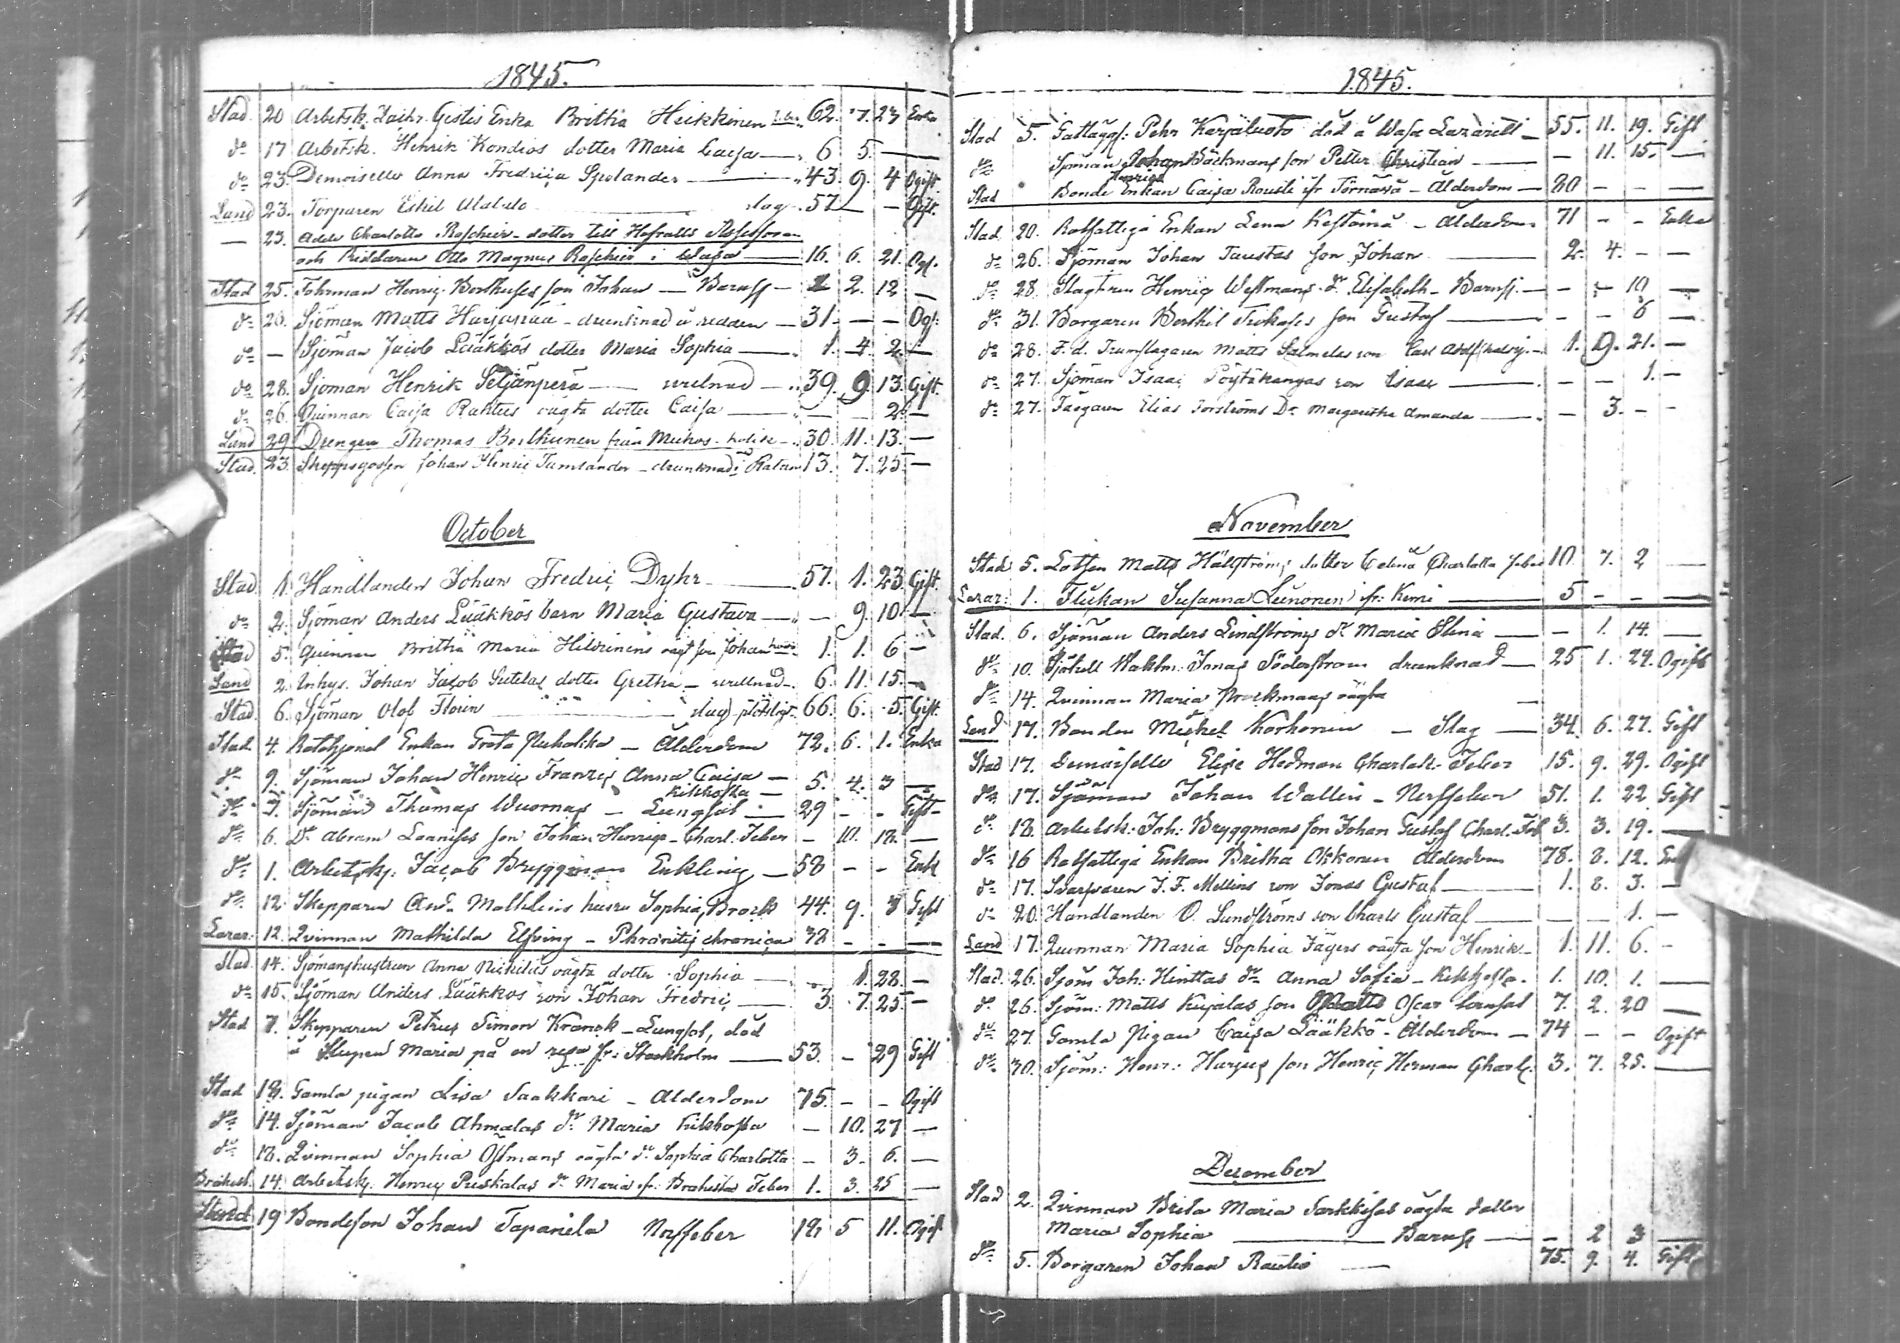 1845.
Stad 20 Arbetsk. Enka Brittha Heikkinen 62. 7. 23 Enka
do 17 Arbetsk. Henrik Kondios dotter Maria Caisa 6 5. —
do 23. Demoiselle Anna Fredrica 43. 9. 4 Ogift
Land 23. Torparen Eskil slag 57 — — Gift.
— 23. Adele Charlotta dotter till Hofrätts Assessoren
och Riddaren Otto Magnus i Wasa 16. 6. 21. Ogf.
Stad 25. Henric son Johan — Barnsj — 2. 12 —
do 20. Sjöman Matts drunknad å redden — 31. — — Ogf.
do — Sjöman Jacob Lääkkös dotter Maria Sophia 1. 4. 2. —
do 28. Sjöman Henrik Seljänperä 39. 9. 13. Gift.
do 26. Quinnan Caisa oägta dotter Caisa — — 2. —
Land 29. Drengen Thomas från Muhos 30. 11. 13. —
Stad. 23. Skeppsgossen Johan Henric drunknad i 13. 7. 25 —
October
Stad 1. Handlanden Johan Fredric Dyhr 57. 1. 23. Gift.
do 2. Sjöman Anders Lääkkös barn Maria Gustava — 9. 10. —
Stad 5. Quinnan Brithа Maria oägt son Johan 1. 1. 6 —
Land 2. Inhys. Johan Jacob dotter Gretha 6. 11. 15. —
Stad. 6. Sjöman Olof Floren slag plötsligt 66. 6. 5. Gift.
Stad 4. Enkan Greta — Ålderdom 72. 6. 1. Enka
do 9. Sjöman Johan Henric Anna Caisa — 5. 4. 3 —
kikhosta
do 7. Sjöman Thomas Wuornas — Lungsot — 29 — — Gift
do 6. Do Abram son Johan Henric — Charl. Feber — 10. 18. —
do 1. Arbetskj. Jacob Bryggman Enkling — 58 — — Enkl
do 12 Skepparen And. hustru Sophia Brock 44. 9. 3 Gift
Lazar: 12. Qvinnan Mathilda Elfving — chronica 38 — — —
Stad 14. Sjömanshustrun Anna oägta dotter Sophia — 1 28. —
do 15. Sjöman Anders Lääkkös son Johan Fredric 3. 7. 25. —
Stad 7. Skepparen Petrus Simon Kranck — Lungsot, död
å Skeppet Maria på en resa fr: Stockholm 53. — 29 Gift
Stad 18. Gamla pigan Lisa Saakkari — Ålderdom 75. — — Ogift
do 14. Sjöman Jacob Ahmalas dr Maria kikhosta — 10. 27 —
do 18. Qvinnan Sophia Östmans oägta dr Sophia Charlotta — 3. 6. —
14. Arbetskj. Henric dr Maria fr. Brahestad Feber 1. 3. 25 —
Land 19 Bondeson Johan Tapanila Nerffeber 18. 5 11. Ogift
1845.
Stad 5. Pehr Karjaluoto död å Wasa Lazarett 55. 11. 19. Gift
do Sjöman Johan Bäckmans son Petter Christian — 11. 15. —
Stad Bonde Enkan Caisa fr Törnävä — Ålderdom — 20 — — —
Stad 20. Rotfattiga Enkan Lena — Ålderdom 71 — — Enka
do 26. Sjöman Johan son Johan 2. 4. — —
do 28. Henric Westmans dr Elisabeth — Barnsj. — — 10 —
do 31. Borgaren Berthil son Gustaf — — 6 —
do 28. F. d. Trumslagaren Matts Salmelas son Carl Adolf 1. 9. 21. —
do 27. Sjöman Isaac Pöytäkangas son Isaac — — 1. —
do 27. Elias Forströms Dr Margaretha Amanda — 3. — —
November
Stad 5. Lotsen Matts Hällströms dotter Charlotta 10. 7. 2 —
Lazar: 1. Flickan Susanna Leinonen fr: Kemi 5 — — —
Stad. 6. Sjöman Anders Lindströms dr Maria Stina — 1. 14. —
do 10. Jonas Söderström drunknad 25 1. 24. Ogift
do 14. Qvinnan Maria oägta —
Land 17. Bonden Korhonen — Slag — 34. 6. 27. Gift
Stad 17. Demoiselle Elise Hedman Charlak. Feber 15. 9. 29. Ogift
do 17. Sjöman Johan Wallin — Nerffeber 51. 1. 22 Gift
do 18. Arbetsk: Joh: Bryggmans son Johan Gustaf Charl. Feb 3. 3. 19. —
do 16 Rotfattiga Enkan Britha Okkonen Ålderdom 78. 8. 12. Enk
do 17. Svarfvaren J. F. Mellins son Jonas Gustaf 1. 8. 3. —
do 20. Handlanden O. Sundströms son Charls Gustaf — — 1. —
Land 17. Quinnan Maria Sophia Jägers oägta son Henrik 1. 11. 6. —
Stad. 26. Sjöm. Joh: Hinttas dr Anna Sofia — Kikhosta. 1. 10. 1. —
do 26. Sjöm: Matts Kujalas son Matts Oscar 7. 2. 20 —
do 27. Gamla Pigan Caisa Lääkkö — Ålderdom — 74 — — Ogift
do 30. Sjöm: Henr: Harjus son Henric Herman 3. 7. 25. —
December
Stad 2. Qvinnan Brita Maria oägta dotter
Maria Sophia — Barnsj — 2 3 —
do 5. Borgaren Johan 75. 9. 4. Gift